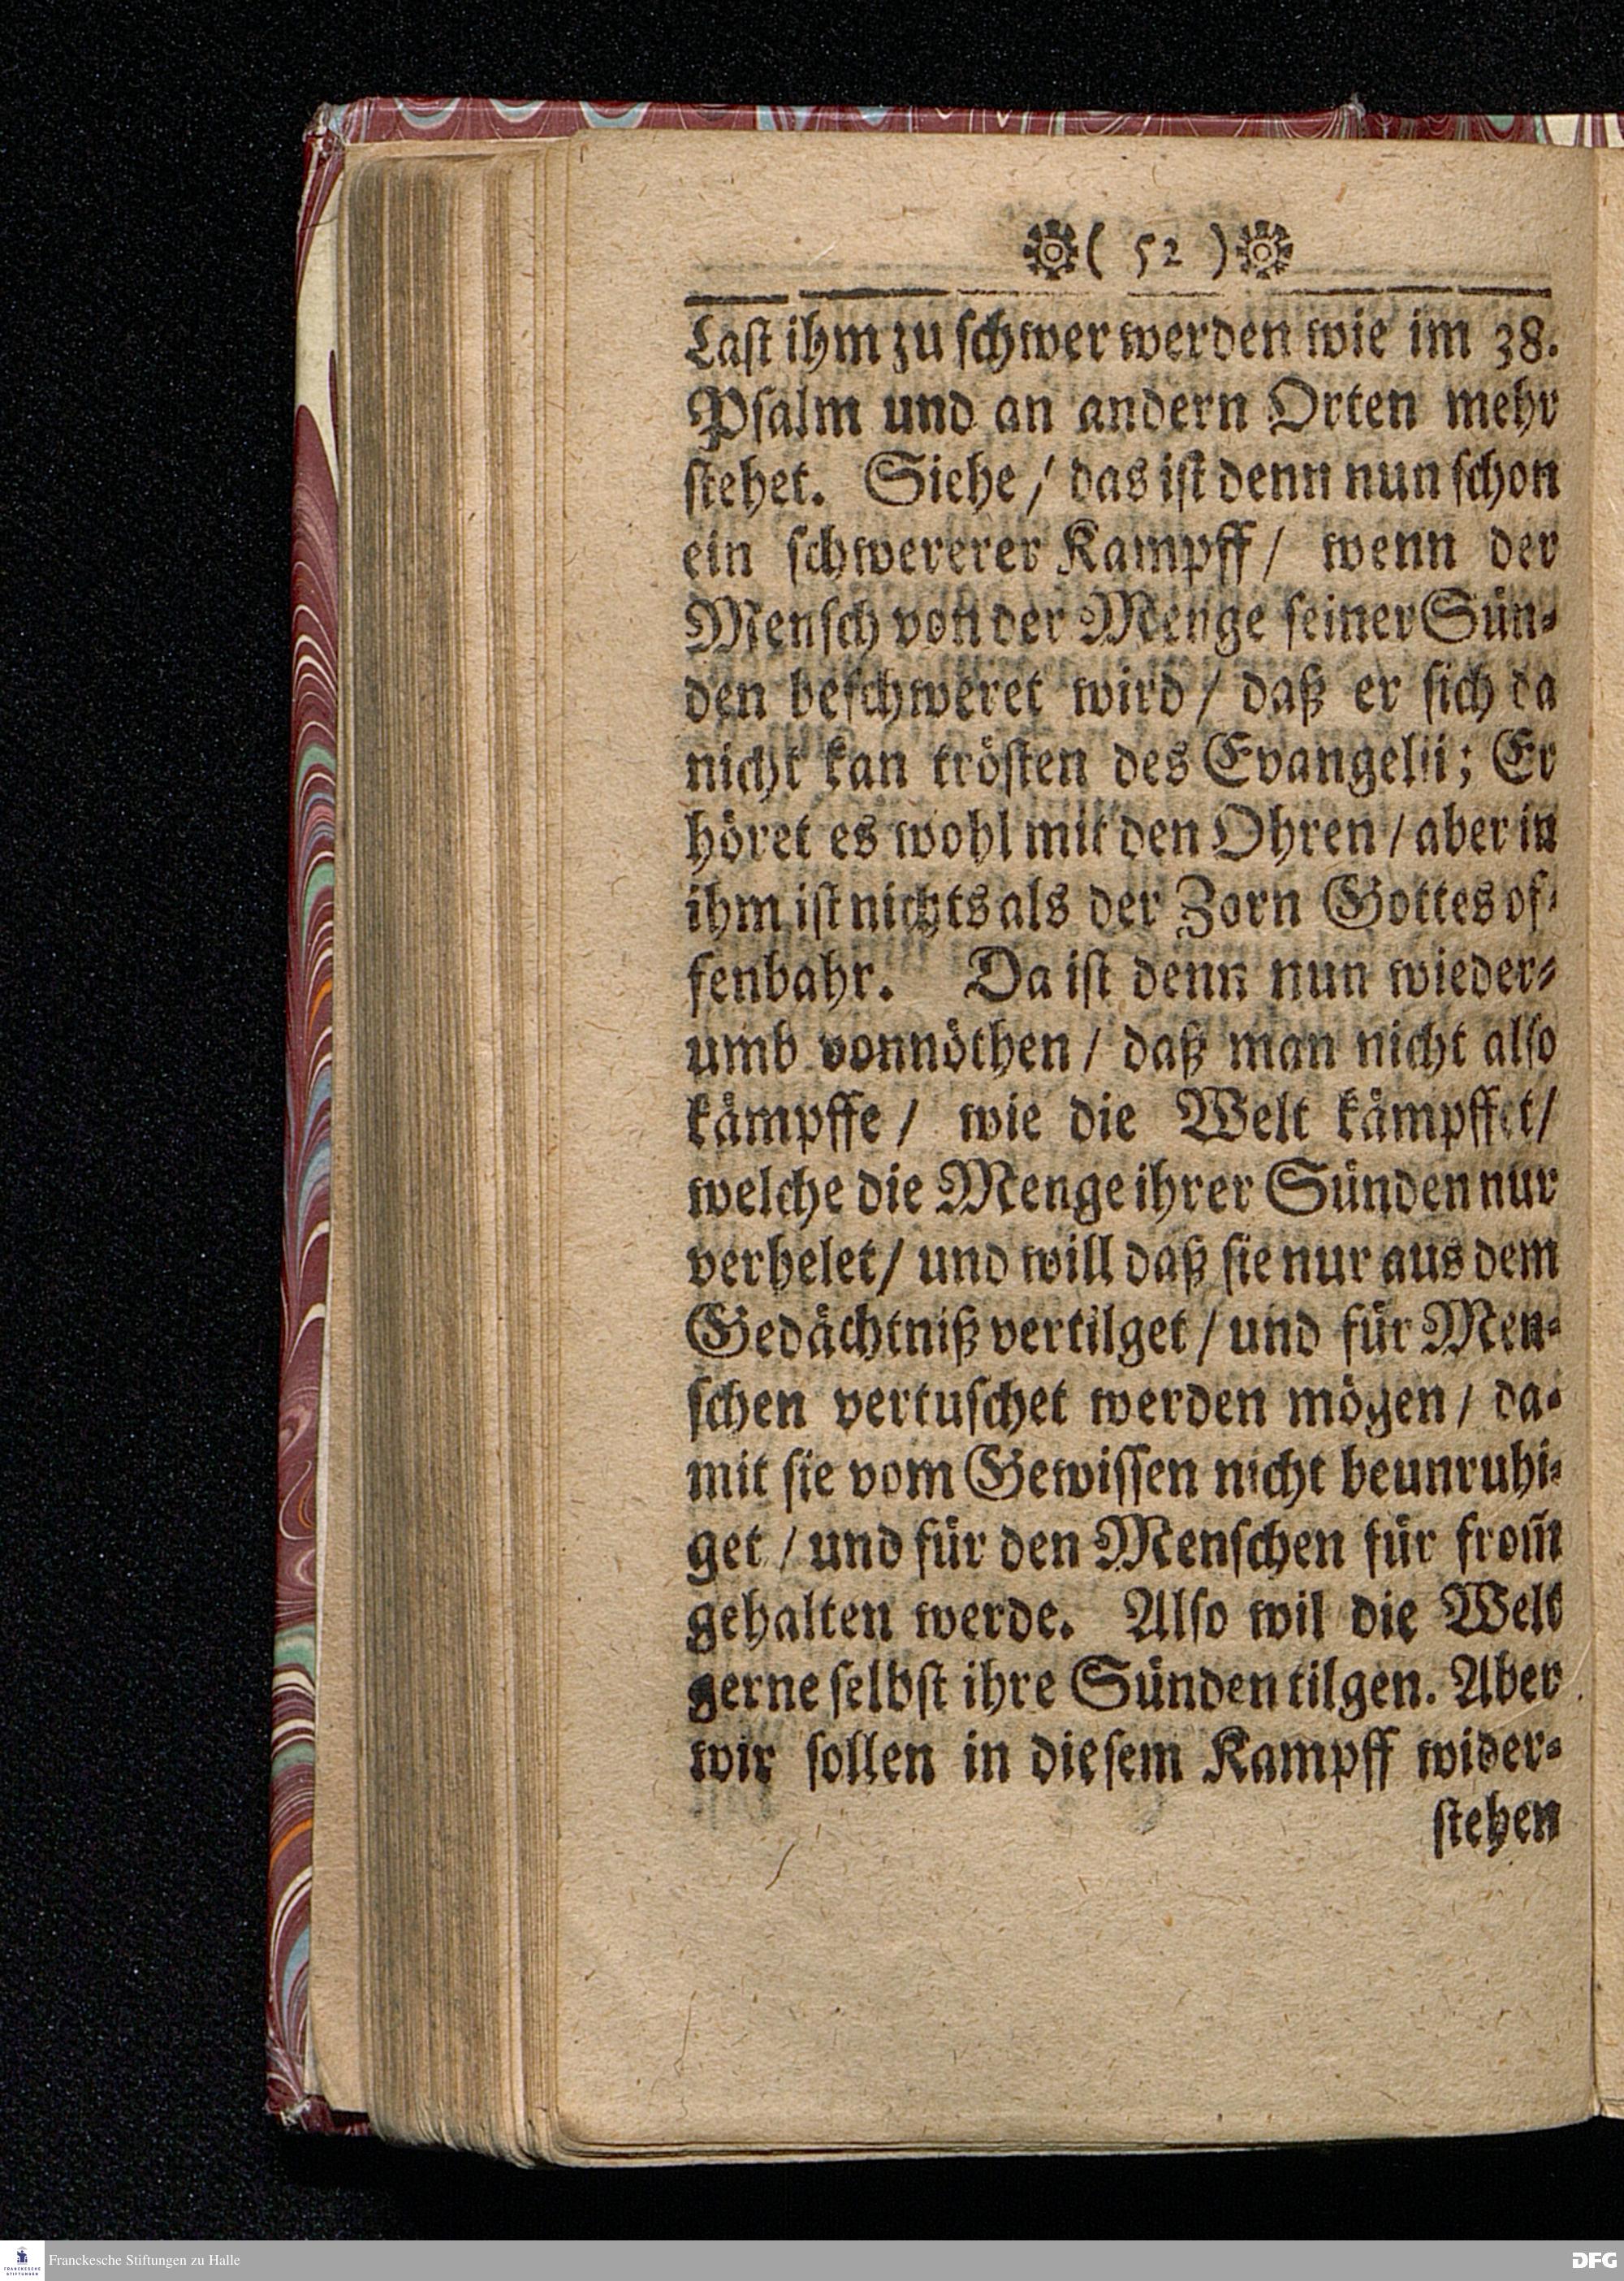 ( 52 )
Laſt ihm zu ſchwer werden wie im 38.
Pſalm und an andern Orten mehr
ſtehet. Siehe / das iſt denn nun ſchon
ein ſchwererer Kampff / wenn der
Menſch von der Menge ſeiner Sün⸗
den beſchweret wird / daß er ſich da
nicht kan tröſten des Evangelii; Er
höret es wohl mit den Ohren / aber in
ihm iſt nichts als der Zorn Gottes of⸗
fenbahr. Da iſt denn nun wieder⸗
umb vonnöthen / daß man nicht alſo
kämpffe / wie die Welt kämpffet /
welche die Menge ihrer Sünden nur
verhelet / und will daß ſie nur aus dem
Gedächtniß vertilget / und für Men⸗
ſchen vertuſchet werden mögen / da⸗
mit ſie vom Gewiſſen nicht beunruhi⸗
get / und für den Menſchen für from̃
gehalten werde. Alſo wil die Welt
gerne ſelbſt ihre Sünden tilgen. Aber
wir ſollen in dieſem Kampff wider⸗
ſtehen
FRANCKESCHE
STIFTUNGEN
Franckesche Stiftungen zu Halle
DFG